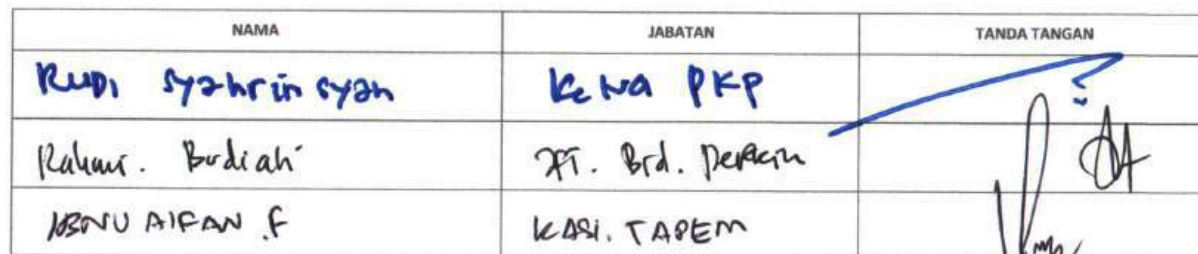 NAMA JABATAN TANDA TANGAN
RUDI Syahrin syah Ketua PKP
Rahmi. Budiah Brd.
IBNU AIFAN .F KASI. TAPEM